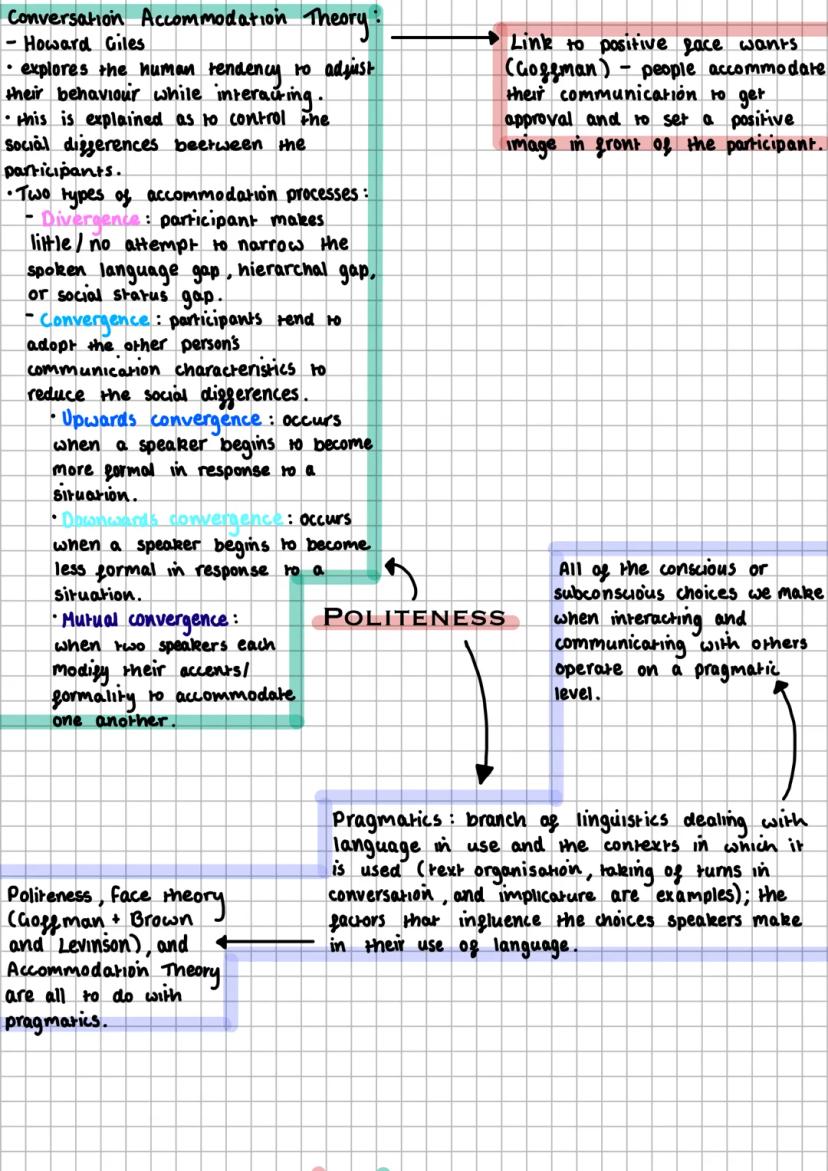 Conversation Accommodation Theory:
- Howard Giles
• explores the human tendency to adjust
their behaviour while interacting.
• this is explained as to control the
social differences beetween the
participants.
• Two types of accommodation processes:
- Divergence: participant makes
little/no attempt to narrow the
spoken language gap, hierarchal gap,
or social status gap.
- Convergence: participants tend to
adopt the other person's
communication characteristics to
reduce the social differences.
• Upwards convergence: occurs
when a speaker begins to become
more formal in response to a
situation.
• Downwards convergence: occurs
when a speaker begins to become
less formal in response to a
situation.
• Mutual convergence:
when two speakers each
modify their accents/
formality to accommodate
one another.
Link to positive face wants
(Goffman) - people accommodate
their communication to get
approval and to set a positive
image in front of the participant.
POLITENESS
All of the conscious or
subconscious choices we make
when interacting and
communicating with others
operate on a pragmatic
level.
Pragmatics: branch of linguistics dealing with
language in use and the contexts in which it
is used (text organisation, taking of turns in
conversation, and implicature are examples); the
factors that influence the choices speakers make
in their use of language.
Politeness, Face theory
(Goffman + Brown
and Levinson), and
Accommodation Theory
are all to do with
pragmatics.